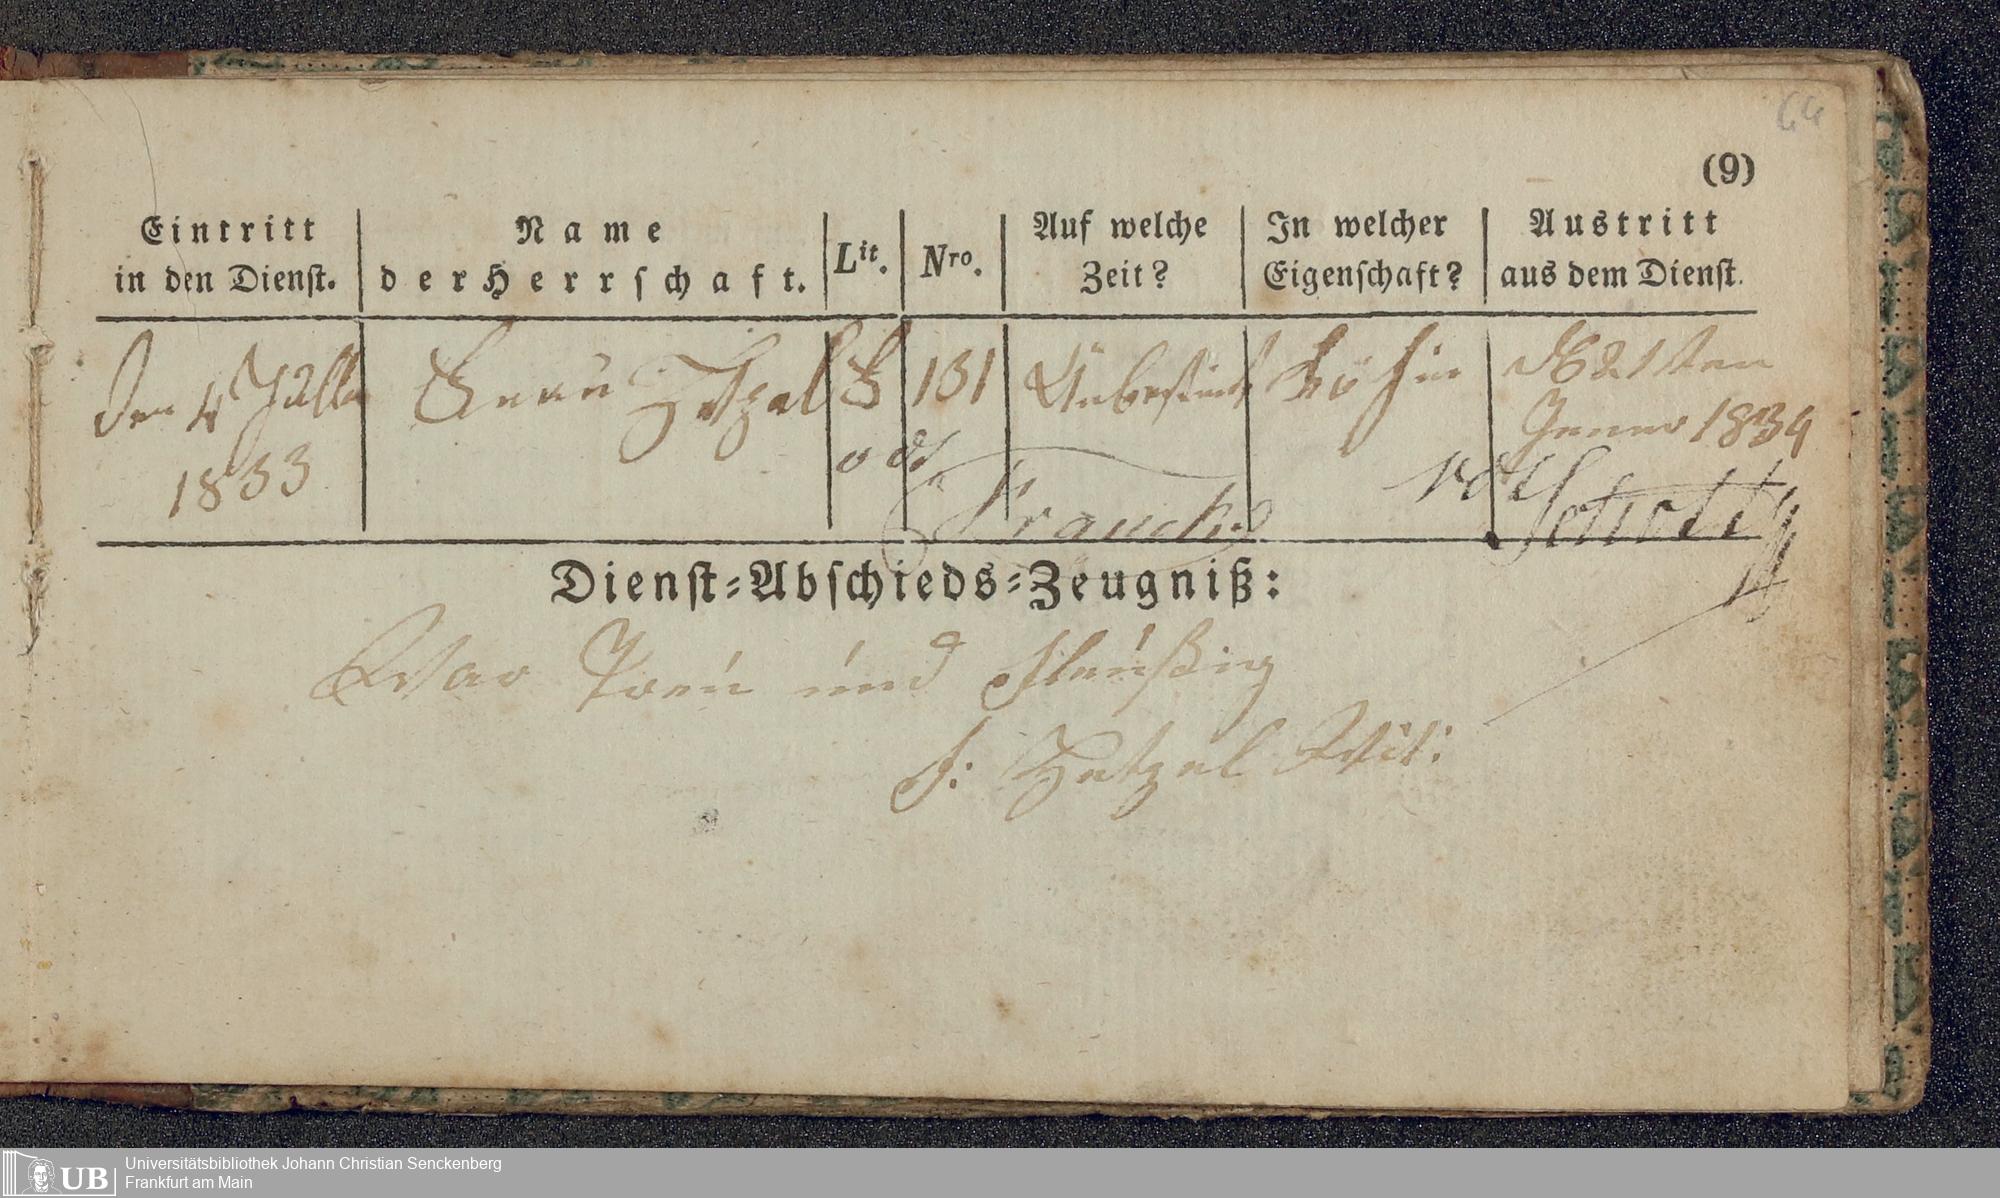 64
(9)
Eintritt in den Dienst.
Name der Herrschaft.
Lit.
Nro.
Auf welche Zeit?
In welcher Eigenschaft?
Austritt aus dem Dienst.
den 4 Julli 1833
Frau Hetzel
131
Unbestimt
Köchin
21ten Jenner 1834
Franck
Dienst-Abschieds-Zeugniß:
War Treu und fleißig
Hetzel Wit:
UB
Universitätsbibliothek Johann Christian Senckenberg
Frankfurt am Main